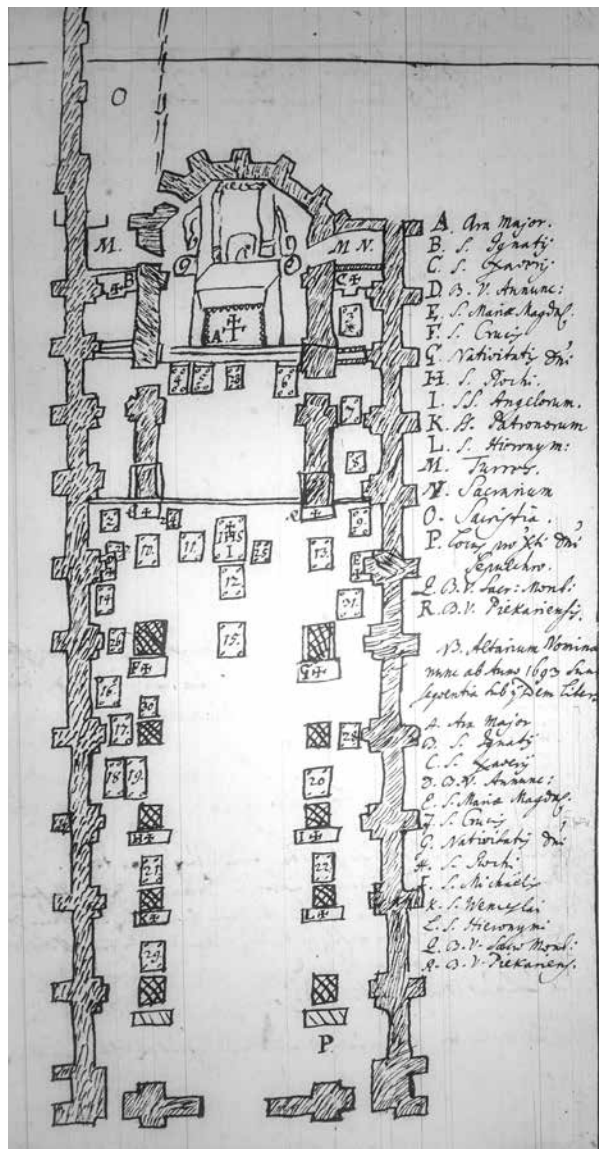 O
M.
M N.
B
C
A
3
4
5
28
6
7
8
2
24
R
9
10.
11.
1HS
I
25
13.
E
12
14
31.
26
15.
F
G
16
30
17.
28
18
19.
20
H
I
21.
22.
K
L
29.
P.
A. Ara Major.
B. S. Ignatij
C. S. Xaverij
D. B. V. Annunc:
E. S. Mariæ Magdal.
F. S. Crucis
G. Nativitatis Dni
H. S. Rochi.
I. SS. Angelorum.
K. SS. Patronorum
L. S. Hieronym:
M. Turres.
N. Sacrarium
O. Sacristia.
P. Locus pro Xti Dni
Sepulchro.
Q. B. V. Sacr: Monti:
R. B. V. Piekariensis.
NB. Altarium Nomina
nunc ab Anno 1693 sunt
seqventia sub
A. Ara Major
B. S. Ignatij
C. S. Xaverij
D. B. V. Annunc:
E. S. Mariæ Magdal.
F. S. Crucis
G. Nativitatis Dni
H. S. Rochi
I. S. Michaelis
K. S. Wenceslai
L. S. Hieronymi
Q. B. V. Sacro Monti:
R. B. V. Piekariens.